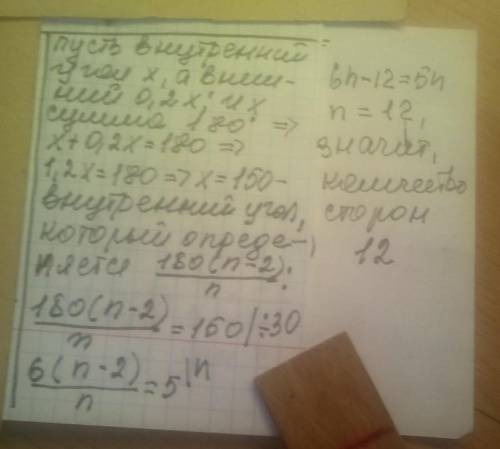 пусть внутренний
угол x, а внеш-
ний 0,2x, их
сумма 180° =>
x+0,2x=180 =>
1,2x=180 => x=150-
внутренний угол,
который опреде-
ляется 180(n-2)/n :
180(n-2)/n = 150 |÷30
6(n-2)/n = 5 |n
6n-12=5n
n=12,
значит,
количество
сторон
12